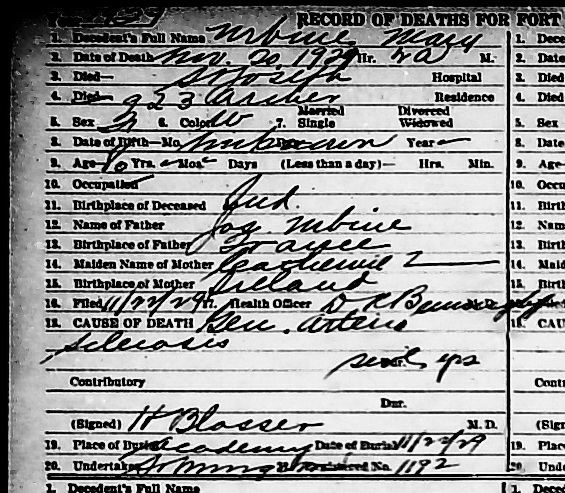 1929
RECORD OF DEATHS FOR FORT
1. Decedent's Full Name Urbine Mary
2. Date of Death Nov. 20, 1929 Hr. 2 A M.
3. Died— St Joseph Hospital
4. Died 923 Archer Residence
Married Divorced
5. Sex F 6. Color W 7. Single Widowed
8. Date of Birth—Mo. Unknown Year —
9. Age 80 Yrs. — Mos. — Days (Less than a day)— Hrs. Min.
10. Occupation
11. Birthplace of Deceased Ind.
12. Name of Father Jos. Urbine
13. Birthplace of Father France
14. Maiden Name of Mother Catherine ?
15. Birthplace of Mother Ireland
16. Filed 11/22/29 17. Health Officer D R M.D.
18. CAUSE OF DEATH Gen. Arterio
Sclerosis
Dur. yrs
Contributory
Dur.
(Signed) H Blosser M. D.
19. Place of Burial Academy Date of Burial 11/22/29
20. Undertaker No. 1192
1. Decedent's Full Name
1. Dece
2. Date
3. Died
4. Died
5. Sex
8. Date
9. Age
10. Occu
11. Birth
12. Nam
13. Birth
14. Maid
15. Birth
16. Filed
18. CAU
Cont
(Sign
19. Place
20. Unde
1. Dece